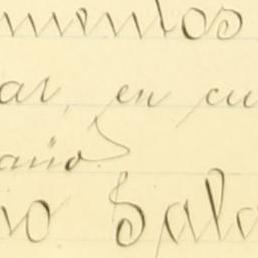 mentos
ar, en cu
año
no Sala